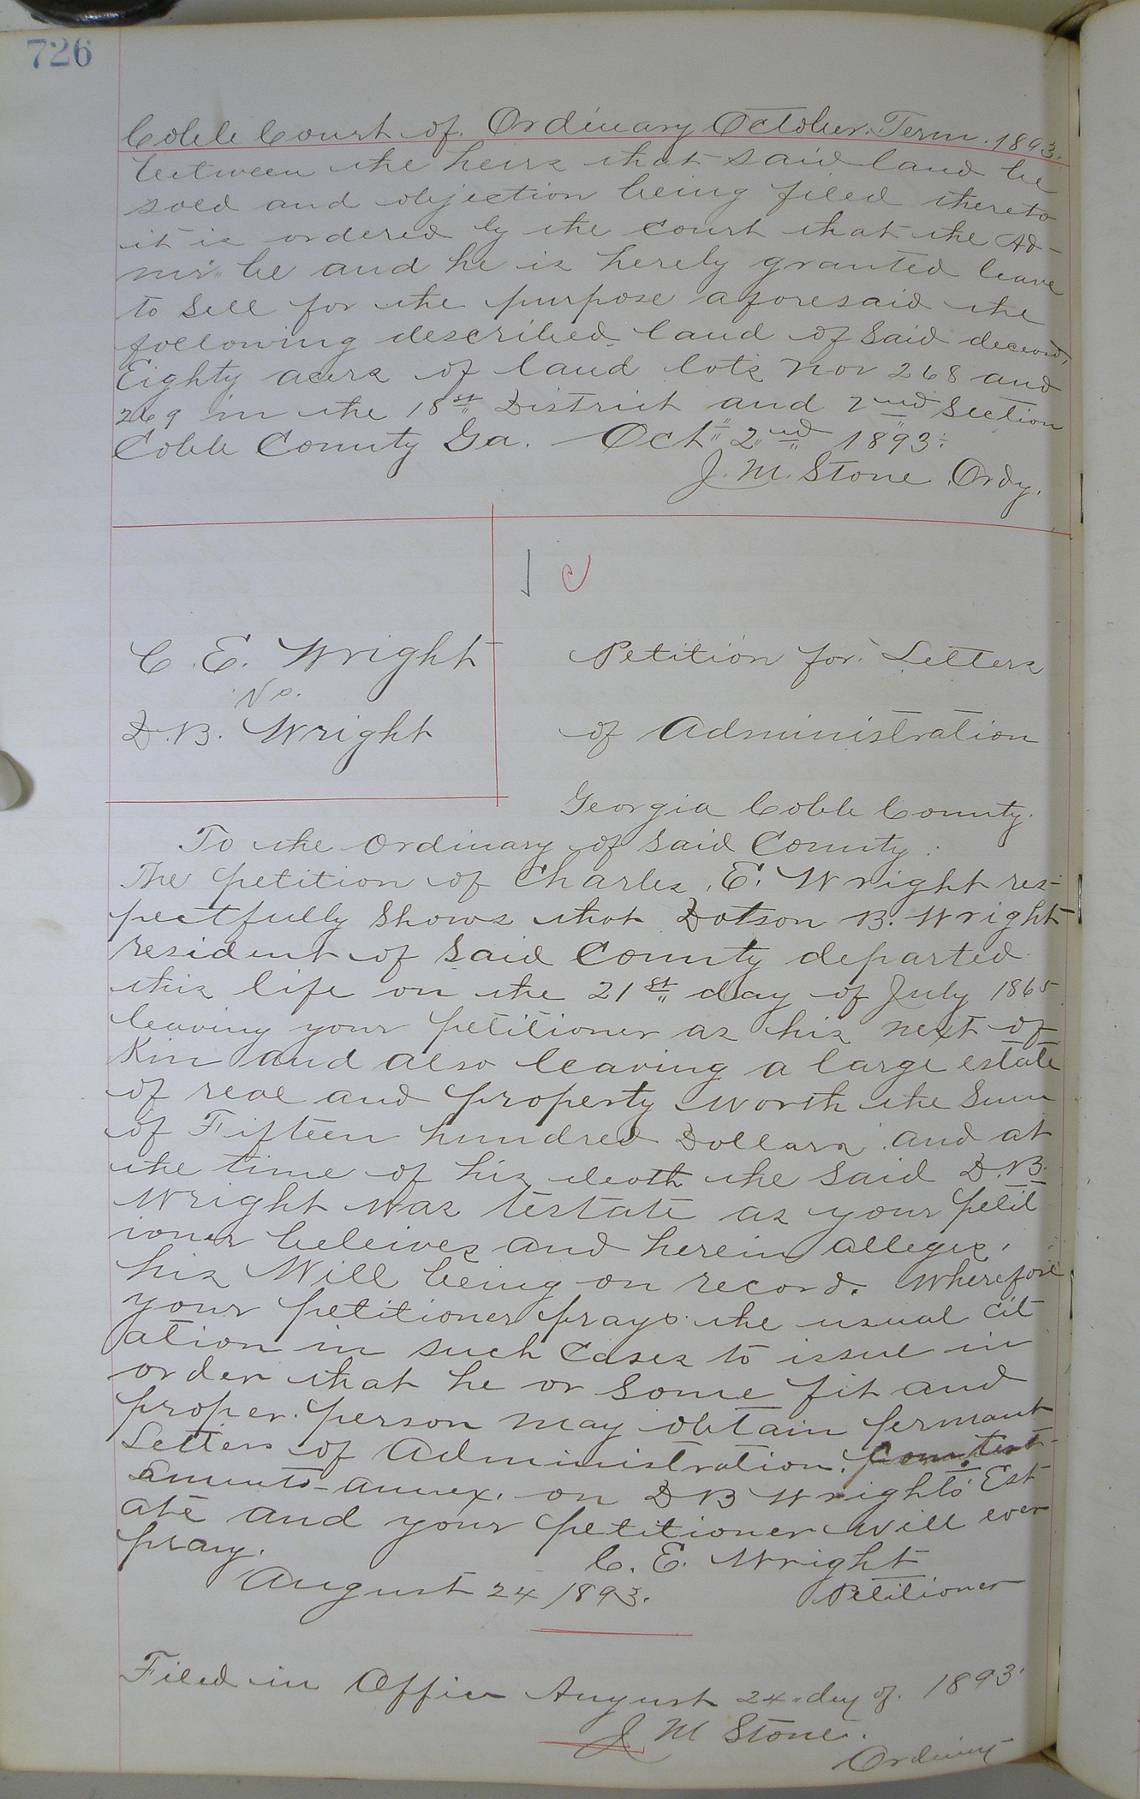 726
Cobb Court of Ordinary October Term. 1893.
between the heirs that said land be
sold and objection being filed thereto
it is ordered by the court that the Ad-
mr. be and he is hereby granted leave
to sell for the purpose aforesaid the
following described land of said deceasd,
Eighty acers of land lots Nos 268 and
269 in the 18st District and 2nd Section
Cobb County Ga. Oct 2nd 1893.
J. M. Stone Ordy.
C. E. Wright
Vs.
D. B. Wright
Petition for Letters
of Administration
Georgia Cobb County.
To the Ordinary of Said County:
The petition of Charles E. Wright res-
pectfully shows that Dotson B. Wright
resident of said County departed
this life on the 21st day of July 1865
leaving your petitioner as his next of
Kin and also leaving a large estate
of real and property worth the Sum
of Fifteen hundred Dollars and at
the time of his death the said D. B.
Wright was testate as your petit
ioner beleives and herein alleges,
his Will being on record. Wherefore
your petitioner prays the usual cit
ation in such Cases to issue in
order that he or some fit and
proper person may obtain permant
Letters of Administration. Com test-
aments annex. on D B Wrights Est
ate and your petitioner will ever
pray.
C. E. Wright
August 24 1893. Petitioner
Filed in Office August 24 day of 1893
J M Stone.
Ordinary